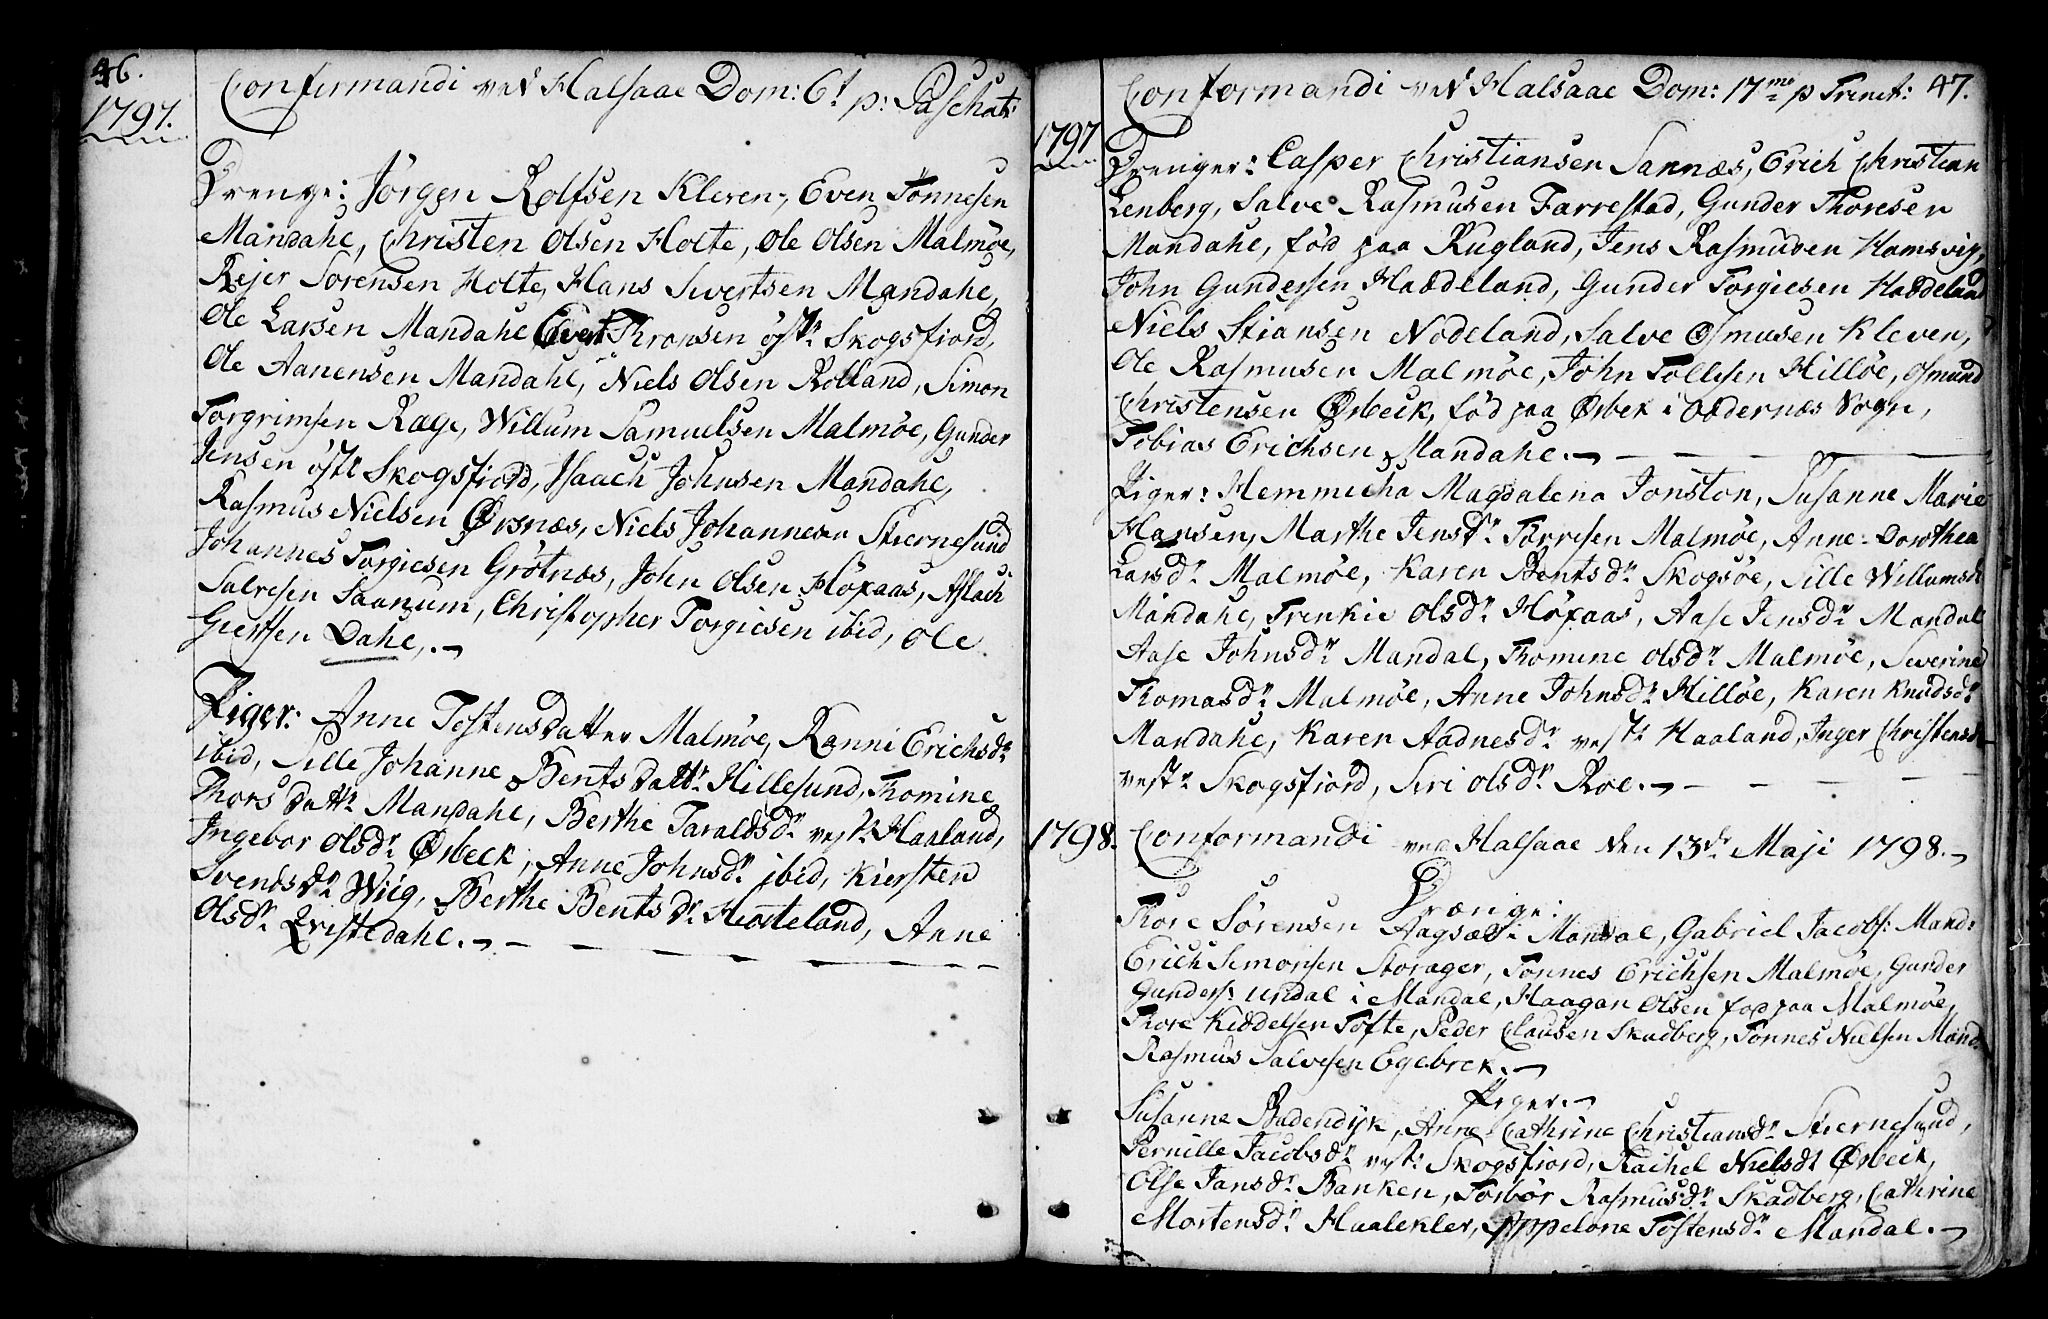 46.
1797.
Confirmandi ved Halsaae Dom: 6t p: Paschat:
Drenge: Jörgen Rolfsen Kleven, Even Tönnesen
Mandahl, Christen Olsen Holte, Ole Olsen Malmöe,
Rejer Sörensen Holte, Hans Sivertsen Mandahl,
Ole Larsen Mandahl Evert Thronsen östr Skogsfiord,
Ole Aanensen Mandahl, Niels Olsen Rolland, Simon
Torgrimsen Rage, Willum Samuelsen Malmöe, Gunder
Jensen östr Skogsfiord, Isaach Johnsen Mandahl,
Rasmus Nielsen Ørsnæs, Niels Johannesen Stiernesund
Johannes Torgiesen Grötnæs, John Olsen Höxaas, Aslach
Salvesen Saanum, Christopher Torgiesen ibid, Ole
Giertsen Dahl,.
Piger: Anne Tostensdatter Malmöe, Ranni Erichsdr
ibid, Sille Johanne Bents Dattr Hillesund, Thomine
Thors Dattr Mandahl, Berthe Taraldsdr vestr Haaland,
Ingebor Olsdr Ørbeck, Anne Johnsdr ibid, Kiersten
Svendsdr Wiig, Berthe Bents dr Hesteland, Anne
Olsdr Qvistedahl.
47.
1797
Conformandi ved Halsaae Dom: 17me p Trinit:
Drenger: Casper Christiansen Sannæs, Erich Christian
Lenberg, Salve Rasmusen Farrestad, Gunder Thoresen
Mandahl, föd paa Rugland, Jens Rasmusen Hamsvig,
John Gundersen Haddeland, Gunder Torgiesen Haddeland
Niels Stiansen Nodeland, Salve Osmusen Kleven,
Ole Rasmusen Malmöe, John Tollesen Hillöe, Osmund
Christensen Ørbeck, föd paa Ørbek i Oddernæs Sogn,
Tobias Erichsen Mandahl.
Piger: Hemmicha Magdalena Jonston, Susanne Marie
Hansen, Marthe Jensdr Törresen Malmöe, Anne Dorothea
Larsdr Malmöe, Karen Bentsdr Skogsöe, Sille Willumsdr
Mandahl, Trinkie Olsdr Höxaas, Aase Jensdr Mandal
Aase Johnsdr Mandal, Thomine Olsdr Malmöe, Severine
Thomasdr Malmöe, Anne Johnsdr Hillöe, Karen Knudsdr
Mandahl, Karen Aadnesdr vestr Haaland, Inger Christensdr
vestr Skogsfiord, Siri Olsdr Roe.
1798.
Conformandi ved Halsaae den 13de Maji 1798.
Drænge:
Thore Sörensen i Mandal, Gabriel Jacobs: Mand:
Erich Simonsen Storager, Tönnes Erichsen Malmöe, Gunder
Gunders: Undal i Mandal, Haagan Olsen fod paa Malmöe,
Thore Kiddelsen Tofte, Peder Clausen Skadberg, Tönnes Nielsen Mand:
Rasmus Salvesen Egebek.
Piger.
Susanne Badendyk, Anne Cathrine Christiansdr Stiernesund,
Pernille Jacobsdr vestr Skogsfiord, Rachel Nielsdt Ørbeck,
Else Jansdr Banken, Torbör Rasmusdr Skadberg, Cathrine
Mortensdr Appelone Tostensdr Mandal.